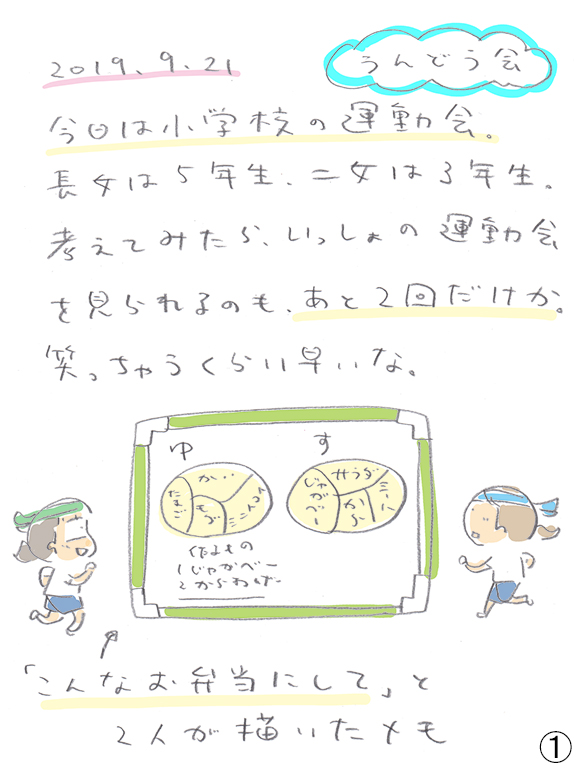 うんどう会
2019、9、21
今日は小学校の運動会。
長女は5年生、二女は3年生。
考えてみたら、いっしょの運動会
を見られるのも、あと2回だけか。
笑っちゃうくらい早いな。
ゆ
す
か‥
たまご
もち
ミニトマト
サラダ
じゃがべー
から
ミート
作るもの
1じゃがべー
2からあげー
「こんなお弁当にして」と
2人が描いたメモ
①